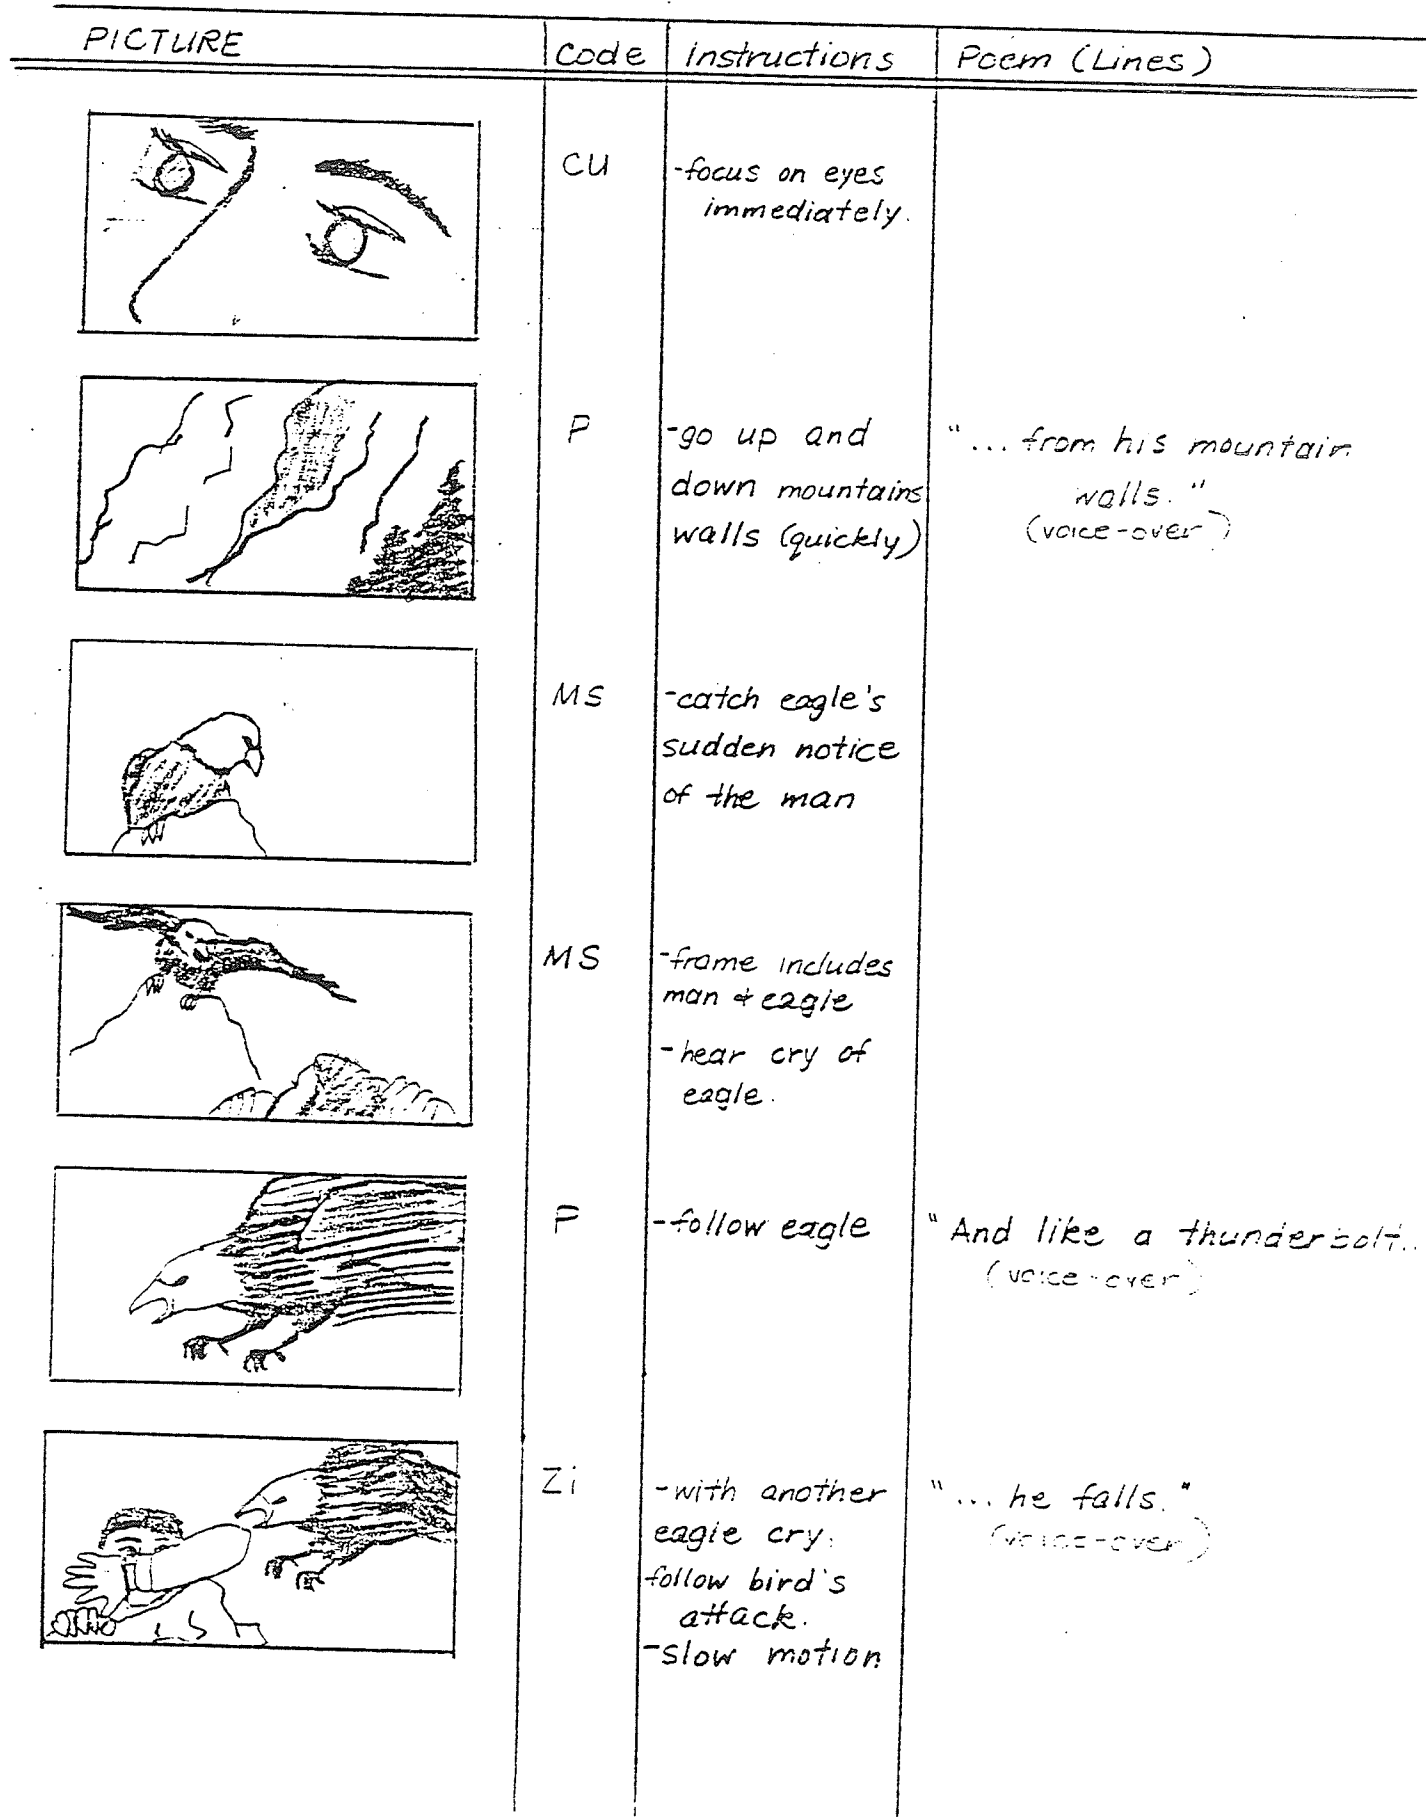 PICTURE Code Instructions Poem (Lines)
CU
-focus on eyes
immediately.
P
-go up and
down mountains
walls (quickly)
"... from his mountain
walls."
(voice-over)
MS
-catch eagle's
sudden notice
of the man
MS
-frame includes
man & eagle
-hear cry of
eagle.
P
-follow eagle
"And like a thunderbolt..
(voice-over)
Zi
-with another
eagle cry.
follow bird's
attack.
-slow motion
"... he falls."
(voice-over)